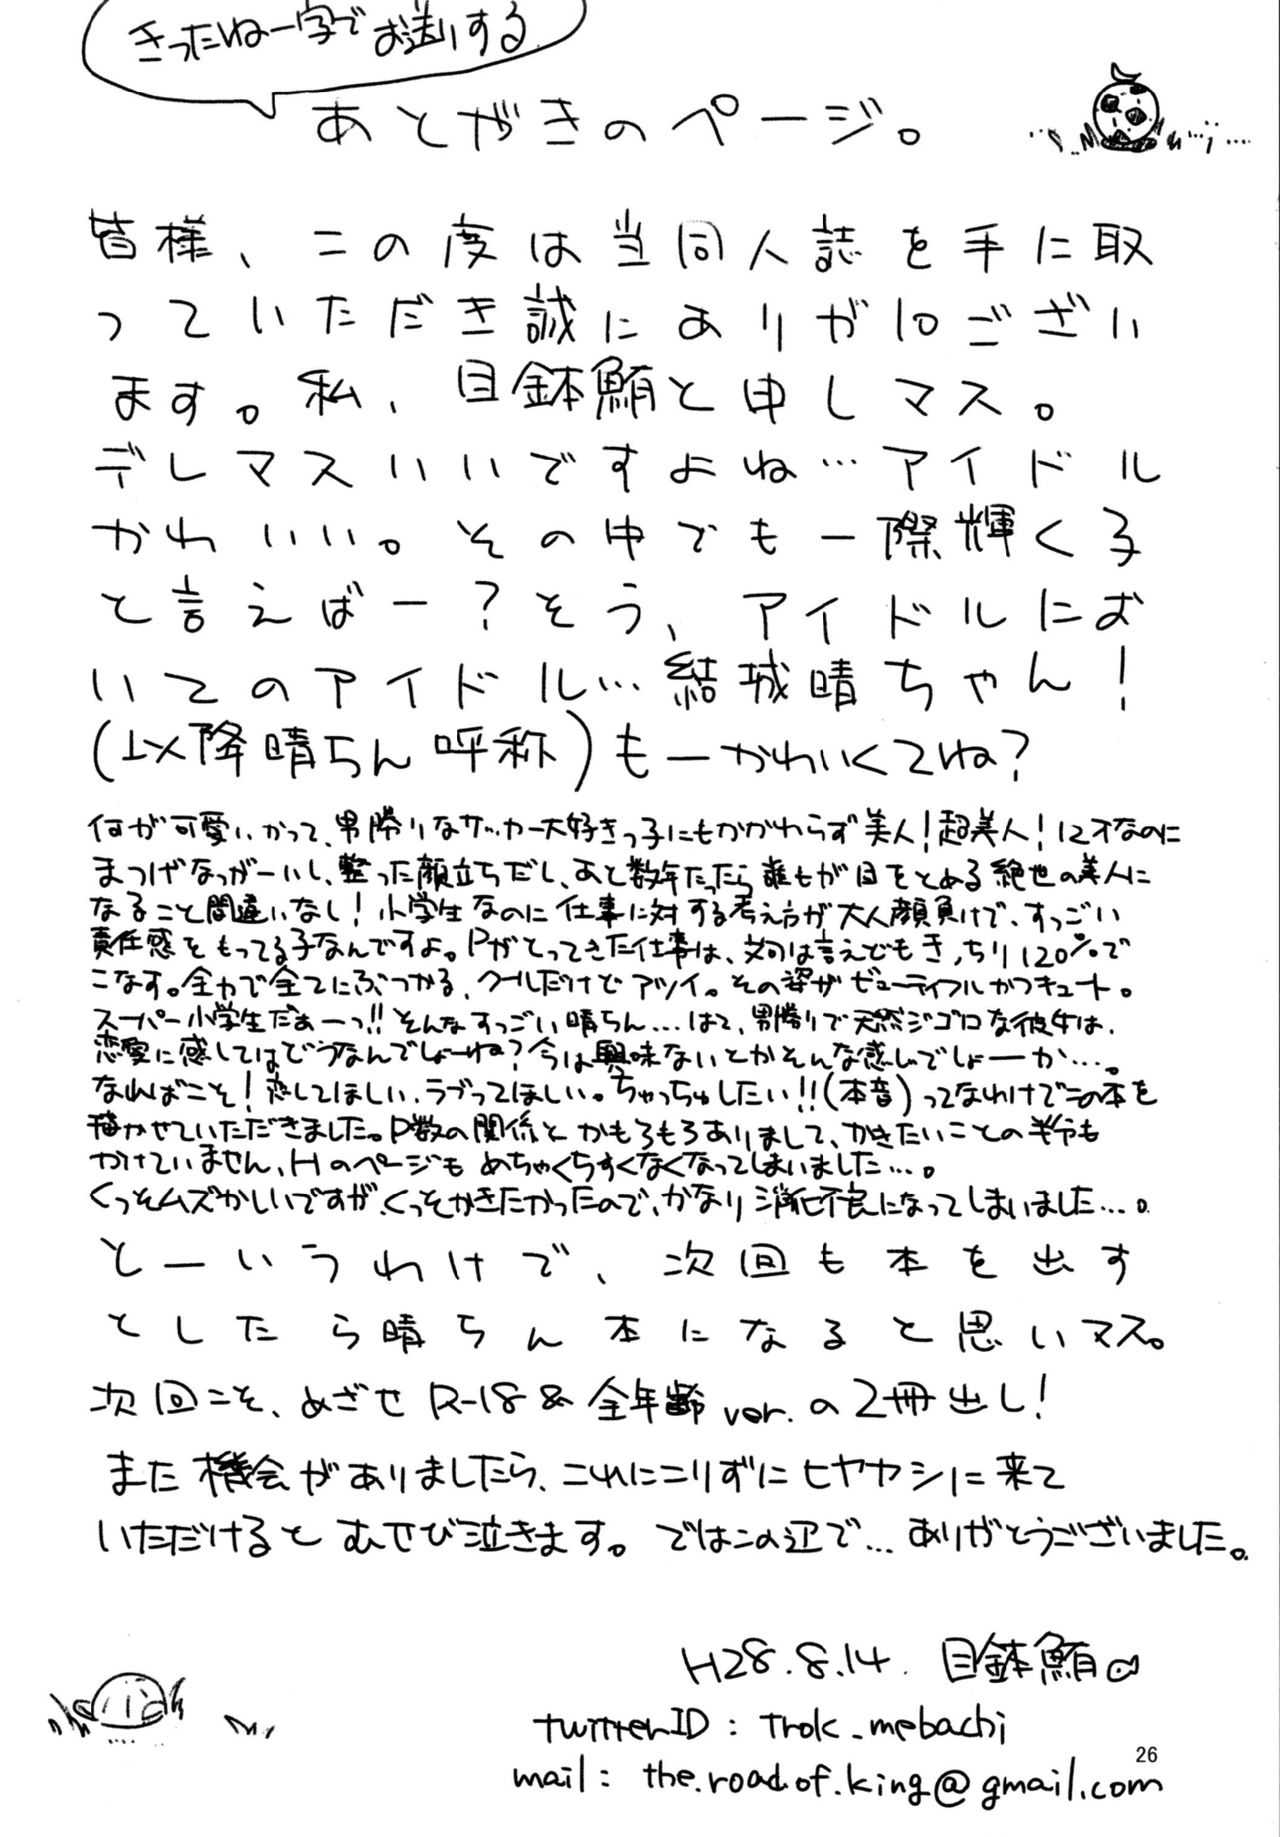 きったねー字でお送りする
あとがきのページ。
皆様、この度は当同人誌を手に取
っていただき誠にありがとうござい
ます。私、目鉢鮪と申しマス。
デレマスいいですよね…アイドル
かわいい。その中でも一際輝く子
と言えばー?そう、アイドルにお
いてのアイドル…結城晴ちゃん!
(以降晴ちん呼称)もーかわいくてね?
何が可愛いかって、男勝りなサッカー大好きっ子にもかかわらず美人!超美人!12才なのに
まつげなっがーいし、整った顔立ちだし、あと数年たったら誰もが目をとめる絶世の美人に
なること間違いなし!小学生なのに仕事に対する考え方が大人顔負けで、すっごい
責任感をもってる子なんですよ。Pがとってきた仕事は、文句は言えどもきっちり120%で
こなす。全力で全てにぶつかる、クールだけどアツイ。その姿がビューティフルかつキュート。
スーパー小学生だぁーっ!!そんなすっごい晴ちん…はて、男勝りで天然ジゴロな彼女は、
恋愛に関してはどうなんでしょーね?今は興味ないとかそんな感じでしょーか…。
なればこそ!恋してほしい、ラブってほしい。ちゃっちゅしたい!!(本音)ってなわけでこの本を
描かせていただきました。P数の関係とかもろもろありまして、かきたいことの半分も
かけていません、Hのページもめちゃくちゃすくなくなってしまいました…。
くっそムズかしいですが、くっそかきたかったので、かなり消化不良になってしまいました…。
とーいうわけで、次回も本を出す
としたら晴ちん本になると思いマス。
次回こそ、めざせR-18&全年齢ver.の2冊出し!
また機会がありましたら、これにこりずにヒヤカシに来て
いただけるとむせび泣きます。ではこの辺で…ありがとうございました。
H28.8.14. 目鉢鮪
twitterID:Trok_mebachi
26
mail:the.road.of.king@gmail.com